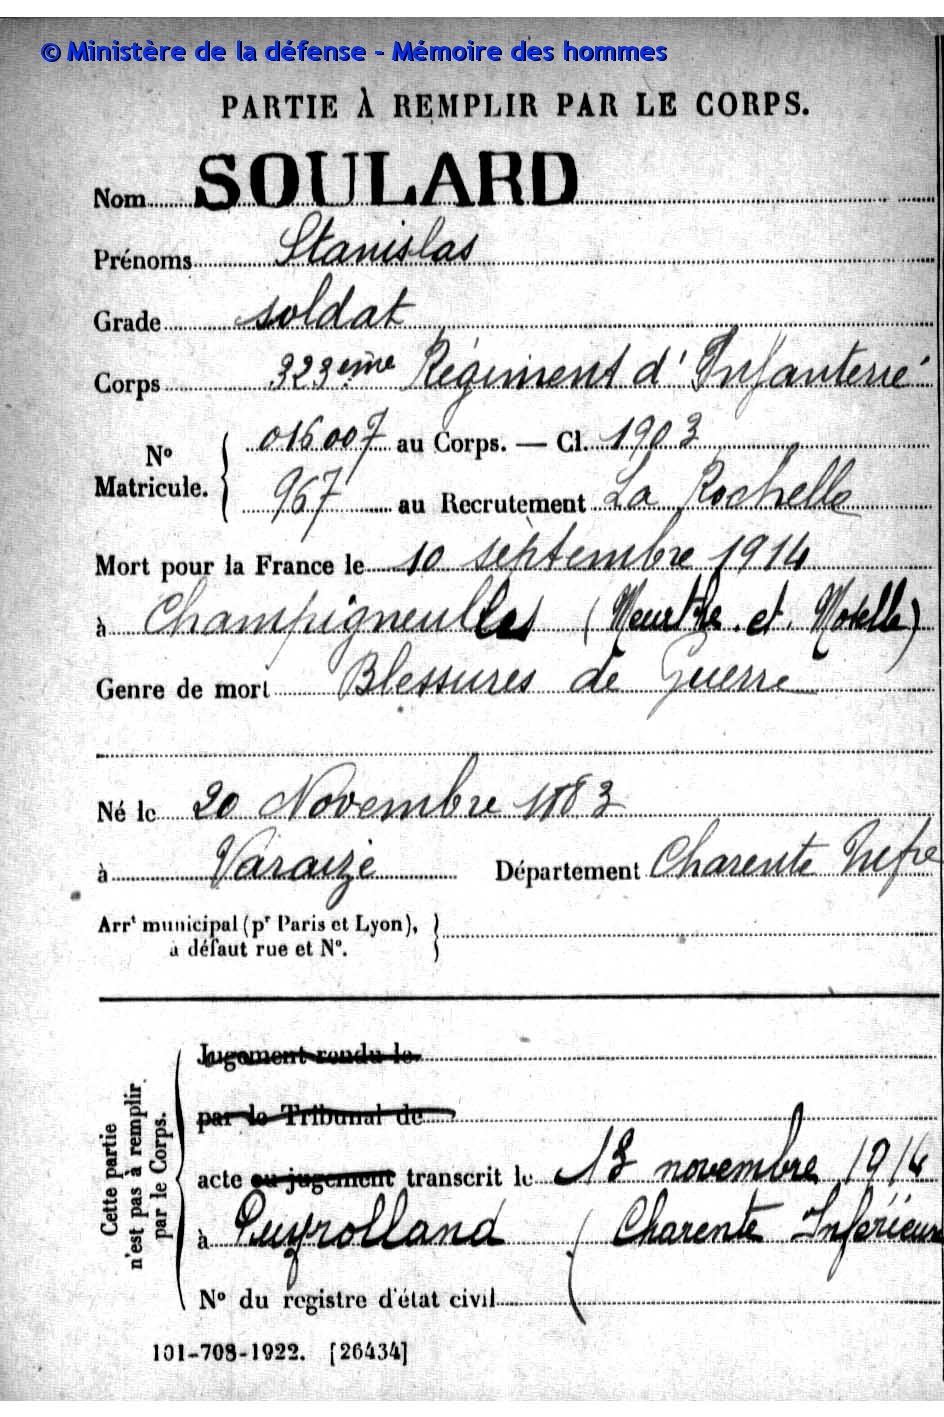 © Ministère de la défense - Mémoire des hommes
PARTIE À REMPLIR PAR LE CORPS.
Nom SOULARD
Prénoms Stanislas
Grade soldat
Corps 323ème Régiment d'Infanterie
N° Matricule. { 016007 au Corps. — Cl. 1903
967 au Recrutement La Rochelle
Mort pour la France le 10 septembre 1914
à Champigneulles (Meurthe et Moselle)
Genre de mort Blessures de Guerre
Né le 20 Novembre 1883
à Varaize Département Charente Infre
Arrt municipal (pr Paris et Lyon),
à défaut rue et N°.
Cette partie
n'est pas à remplir
par le Corps.
Jugement rendu le
par le Tribunal de
acte ou jugement transcrit le 13 novembre 1914
à Puyrolland (Charente Inférieure
N° du registre d'état civil
101-708-1922. [26434]